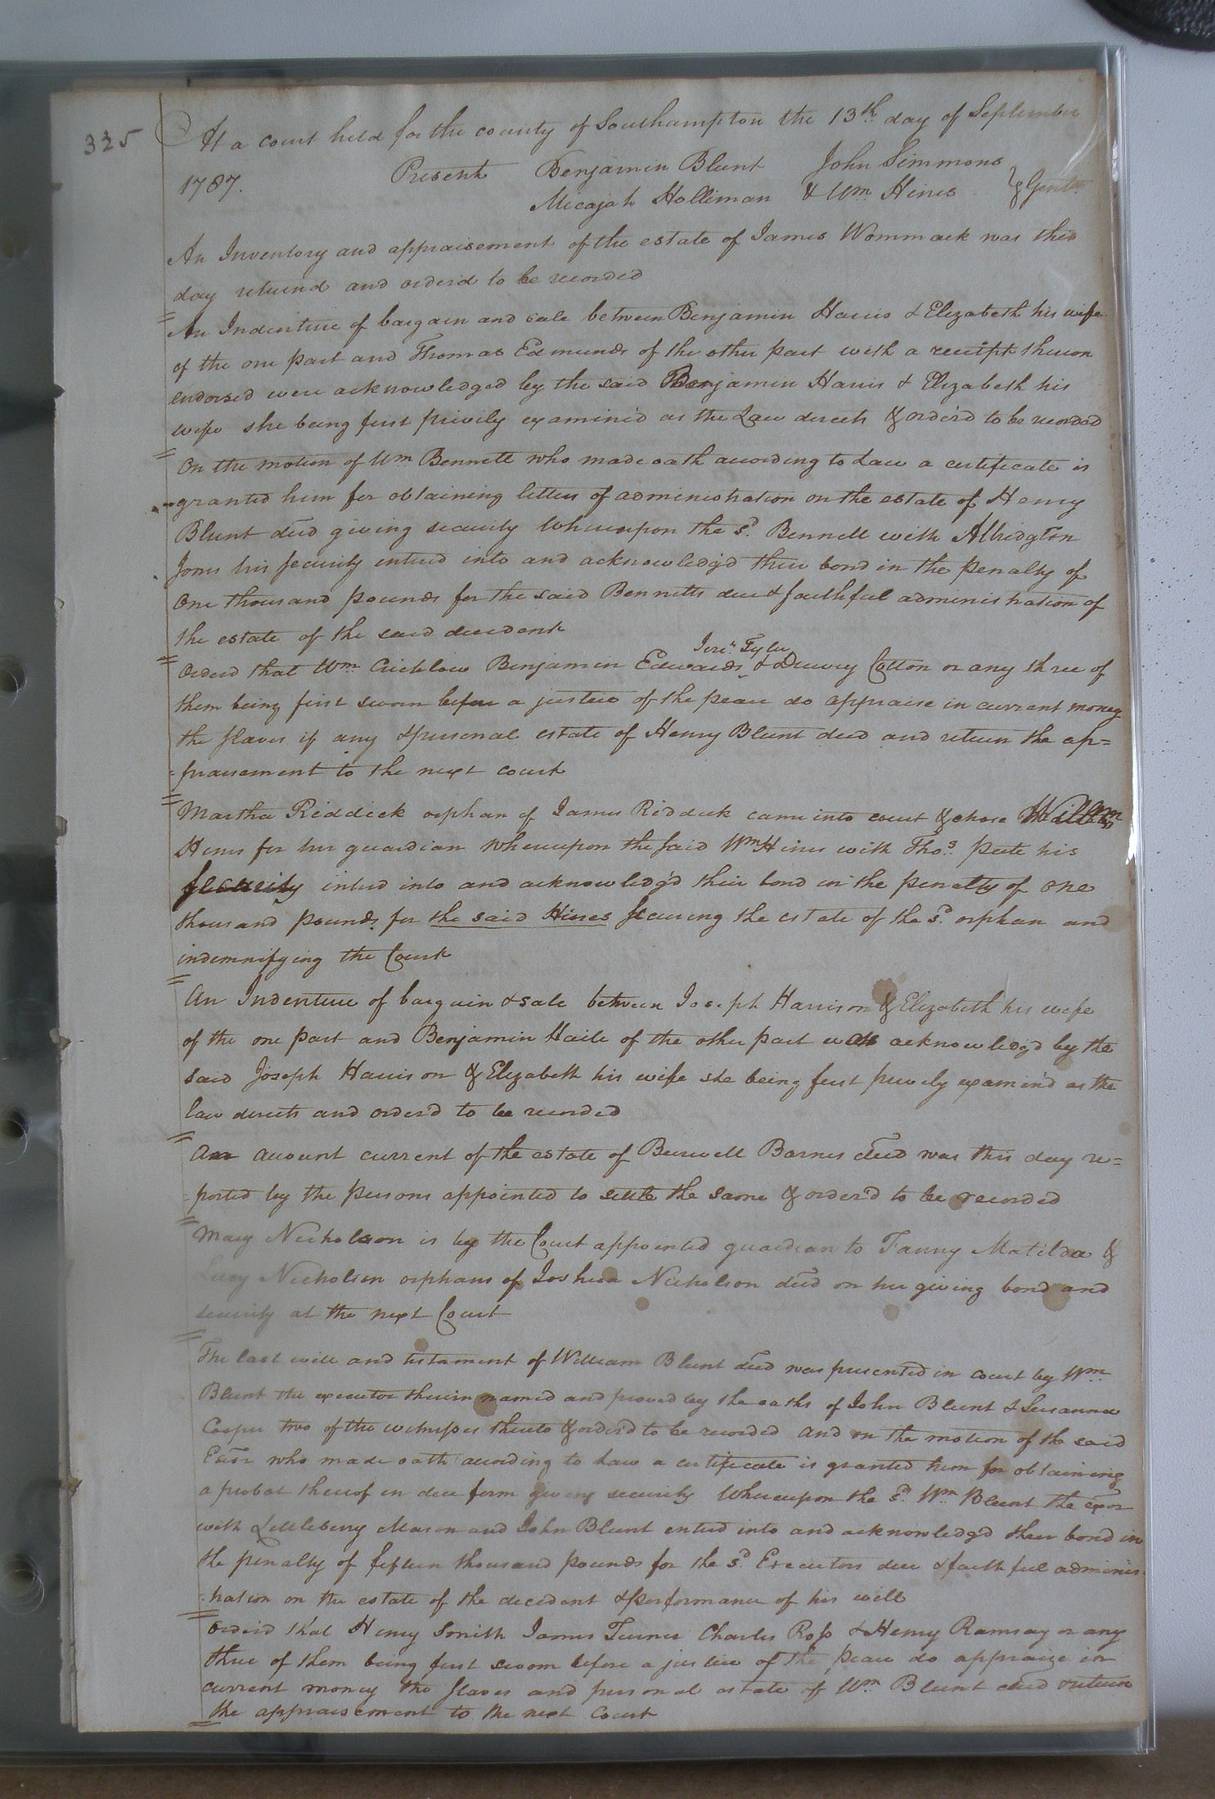 325
At a court held for the county of Southampton the 13th day of September
1787. Present Benjamin Blunt John Simmons
Micajah Holliman & Wm Hines } Gentn
An Inventory and appraisement of the estate of James Wommack was this
day returnd and orderd to be recorded
An Indenture of bargain and sale between Benjamin Harris & Elizabeth his wife
of the one part and Thomas Edmunds of the other part with a receipt thereon
endorsed were acknowledged by the said Benjamin Harris & Elizabeth his
wife she being first privily examined as the Law directs & order'd to be recorded
On the motion of Wm Bennett who made oath according to Law a certificate is
granted him for obtaining letters of administration on the estate of Henry
Blunt deced giving security Whereupon the sd. Bennett with Albridgton
Jones his security enterd into and acknowledg'd their bond in the penalty of
One thousand pounds for the said Bennetts due & faithful administration of
the estate of the said decedent
Jerih. Tyler
Orderd that Wm Crichlow Benjamin Edwards & Drewry Cotton or any three of
them being first sworn before a justice of the peace do appraise in current money
the slaves if any & personal estate of Henry Blunt deced and return the ap=
=praisement to the next court
Martha Riddick orphan of James Riddick came into court & chose Willm
Hines for her guardian Whereupon the said Wm Hines with Thos. Peete his
security enterd into and acknowledg'd their bond in the penalty of one
thousand pounds for the said Hines securing the estate of the sd. orphan and
indemnifying the Court
An Indenture of bargain & sale between Joseph Harrison & Elizabeth his wife
of the one part and Benjamin Haile of the other part was acknowledg'd by the
said Joseph Harrison & Elizabeth his wife she being first privily examin'd as the
law directs and order'd to be recorded
An account current of the estate of Burwell Barnes deced was this day re=
=ported by the persons appointed to settle the same & order'd to be recorded
Mary Nicholson is by the Court appointed guardian to Fanny Matilda &
Lucy Nicholson orphans of Joshua Nicholson deced on her giving bond and
security at the next Court
The last will and testament of William Blunt deced was presented in court by Wm
Blunt the executor therein named and proved by the oaths of John Blunt & Susanna
Cooper two of the witnesses thereto & orderd to be recorded and on the motion of the said
Exor who made oath according to Law a certificate is granted him for obtaining
a probat thereof in due form giving security Whereupon the sd. Wm Blunt the exor
with Littleberry Mason and John Blunt enterd into and acknowledg'd their bond in
the penalty of fifteen thousand pounds for the sd. Executors due & faithful adminis
=tration on the estate of the decedent & performance of his will
Orderd that Henry Smith James Turner Charles Ross & Henry Ramsay or any
three of them being first sworn before a justice of the peace do appraize in
current money the slaves and personal estate of Wm Blunt deced & return
the appraisement to the next Court